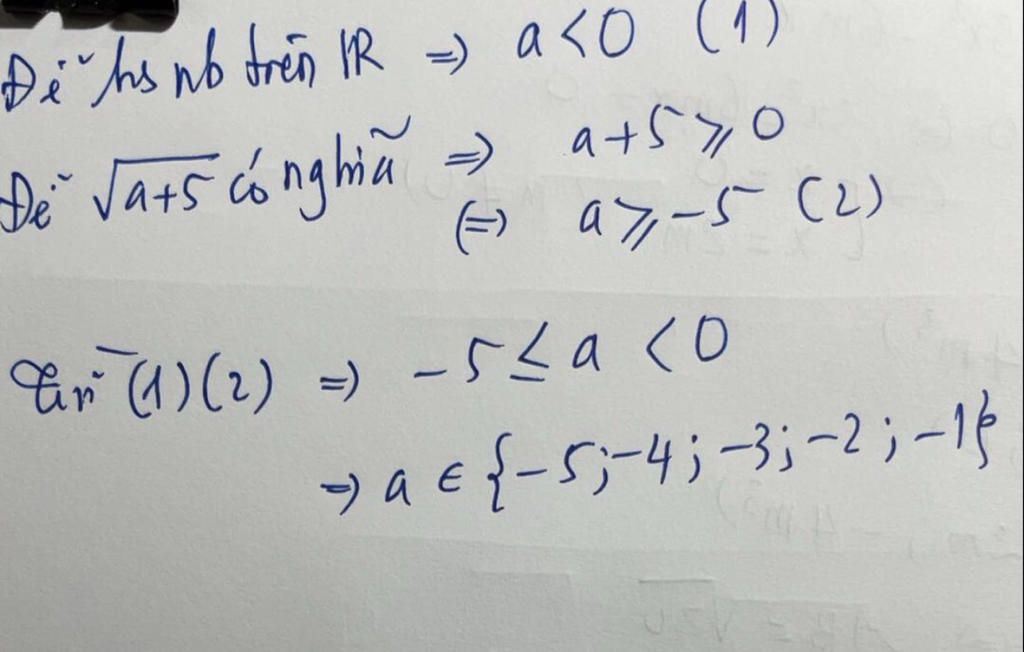 Để hs nb trên ℝ => a < 0 (1)
Để √a+5 có nghĩa => a+5 ⩾ 0
(=) a ⩾ -5 (2)
Từ (1)(2) => -5 ≤ a < 0
=> a ∈ {-5; -4; -3; -2; -1}